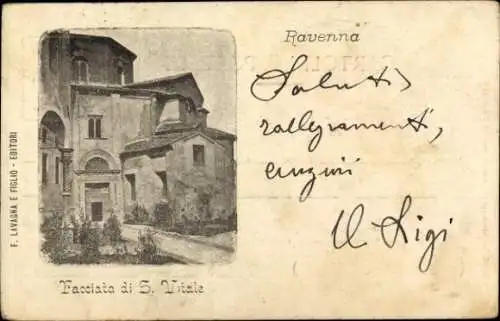 Ravenna
F. LAVAGNA E FIGLIO - EDITORI
Saluti,
rallegramenti,
auguri
Il Gigi
Facciata di S. Vitale